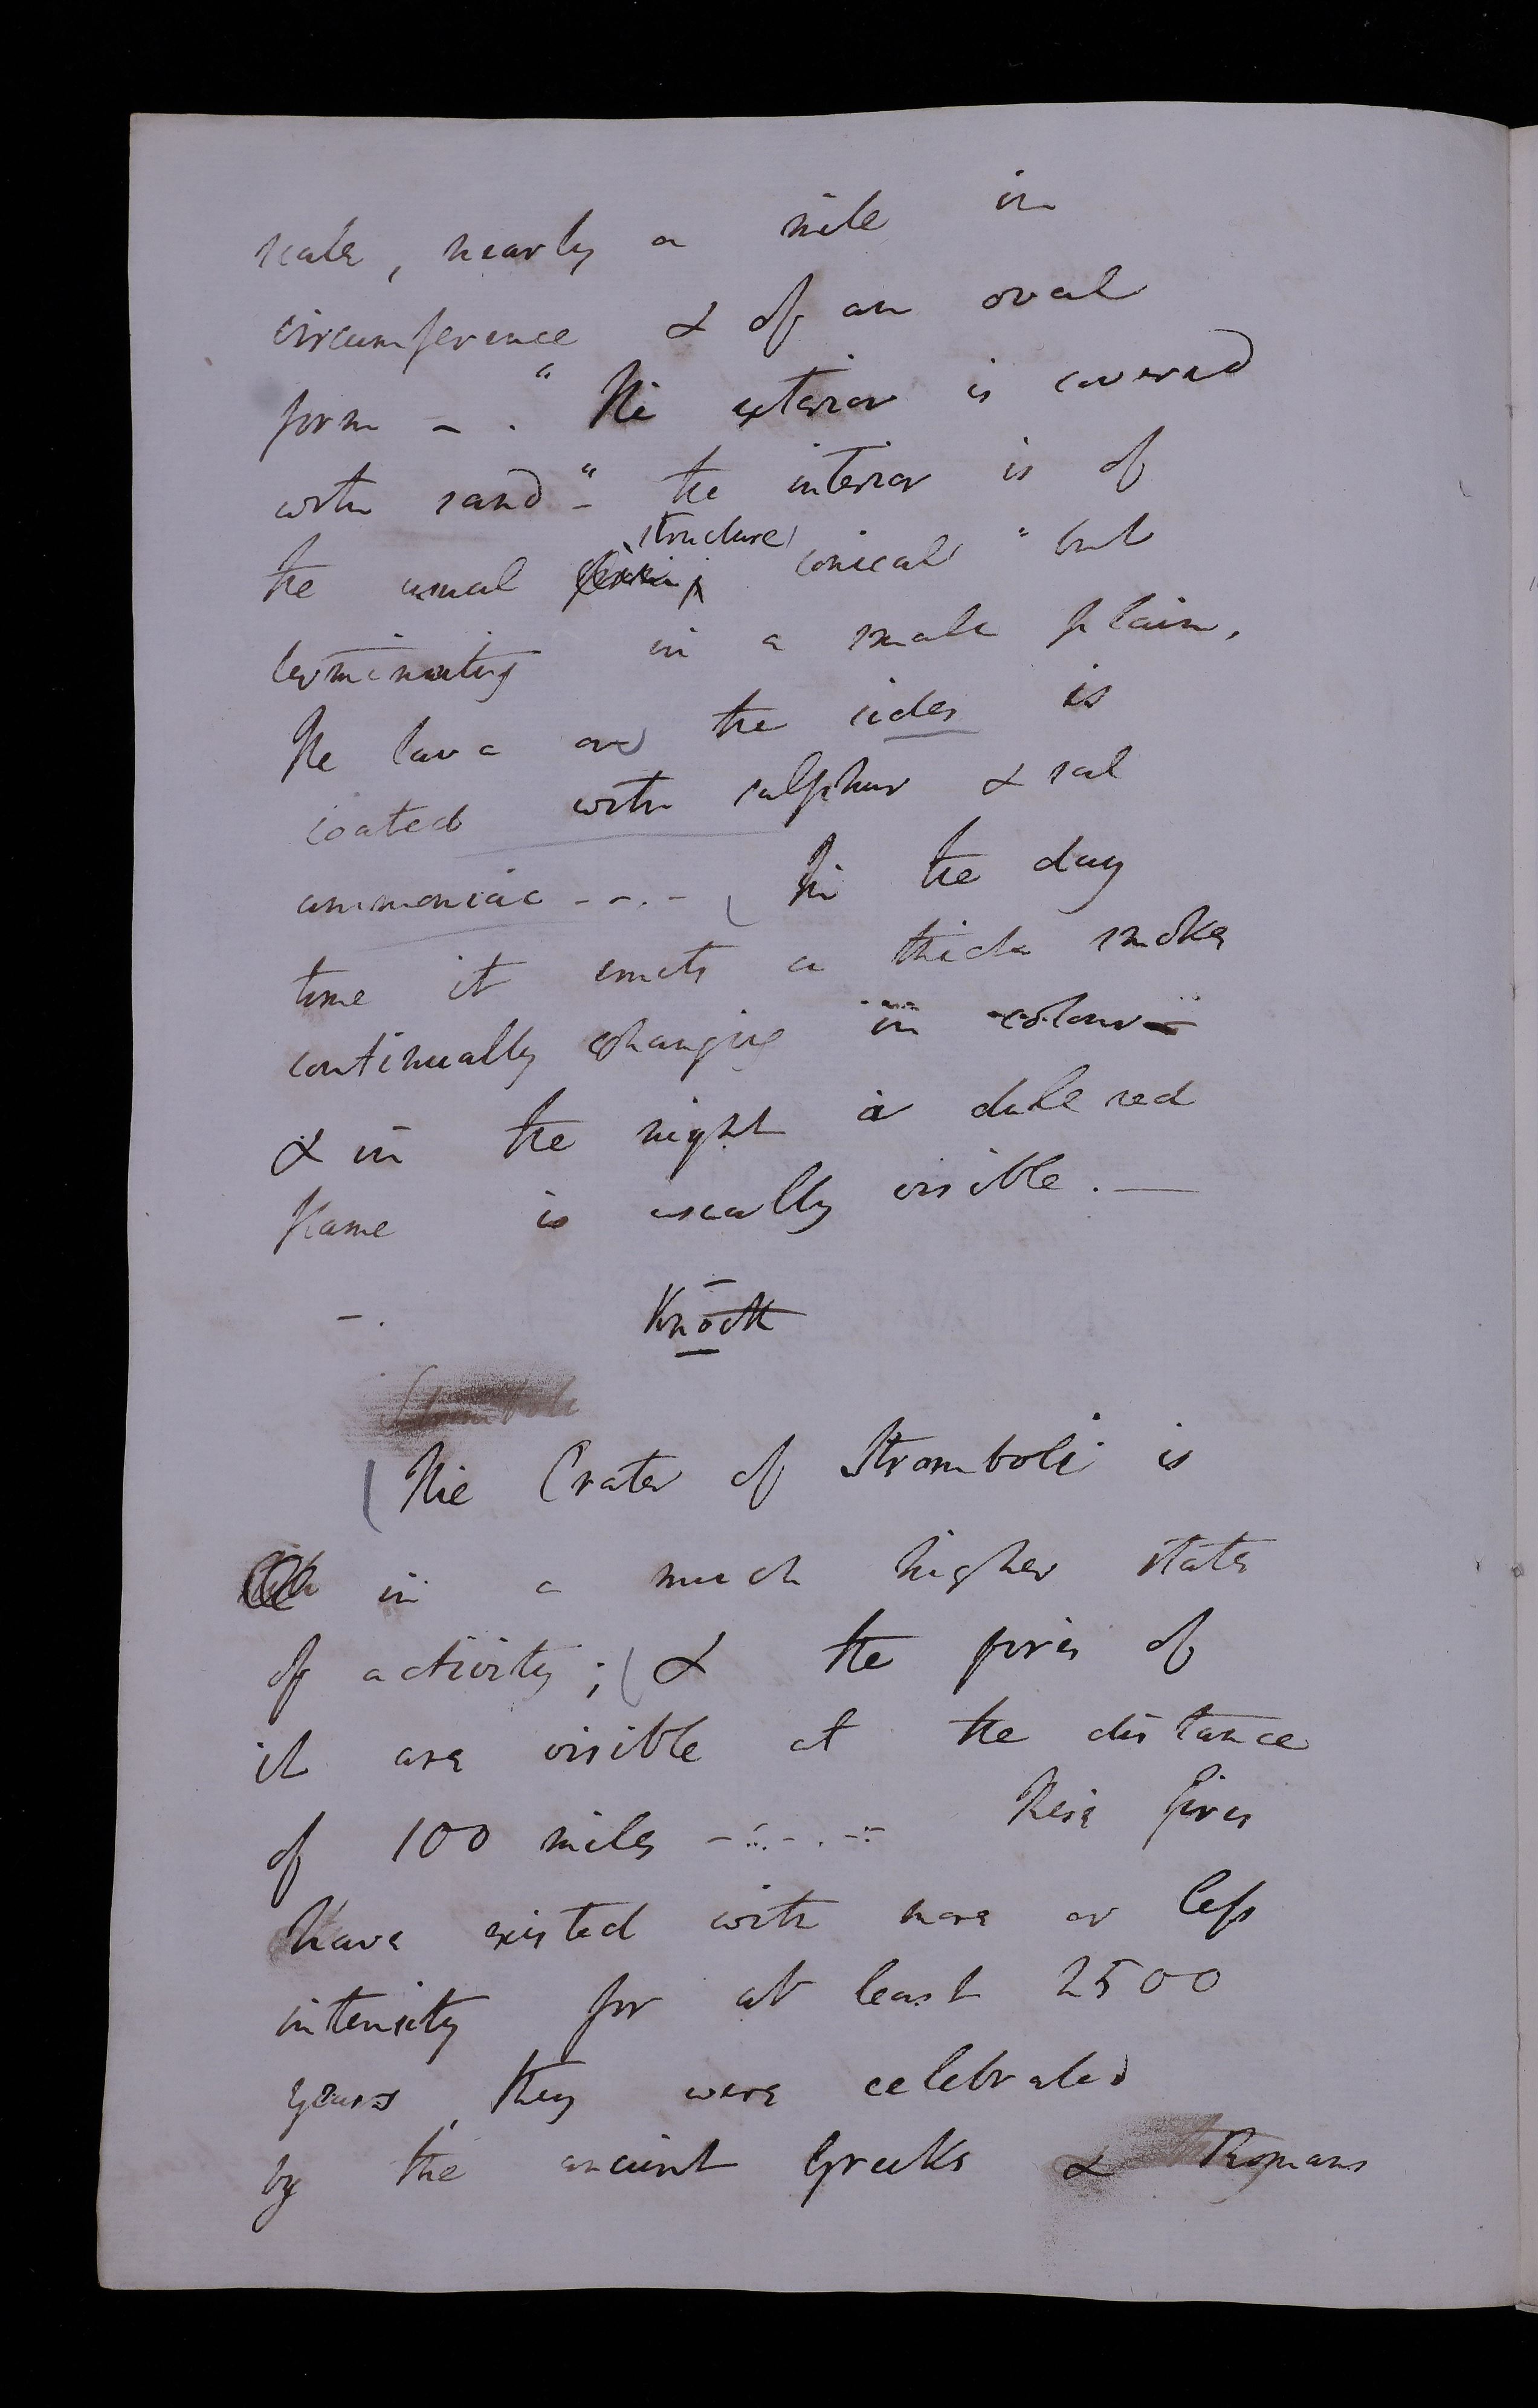 scale, nearly a mile in
circumference & of an oval
form - . "The exterior is covered
with sand" - the interior is of
the usual structure conical " but
terminating in a small plain,
The lava on the sides is
coated with sulphur & sal
ammoniac - - . - In the day
time it emits a thick smoke
continually changing in colour -
& in the night a dull red
flame is usually visible. —
- .
Stromboli
(The Crater of Stromboli is
in a much higher state
of activity; (& the fires of
it are visible at the distance
of 100 miles - . - . - These fires
have existed with more or less
intensity for at least 2500
years, they were celebrated
by the ancient Greeks & Romans